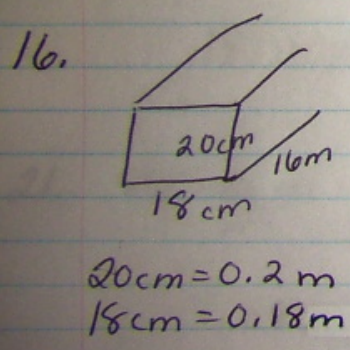 16.
20cm
16m
18cm
20cm = 0.2m
18cm = 0.18m